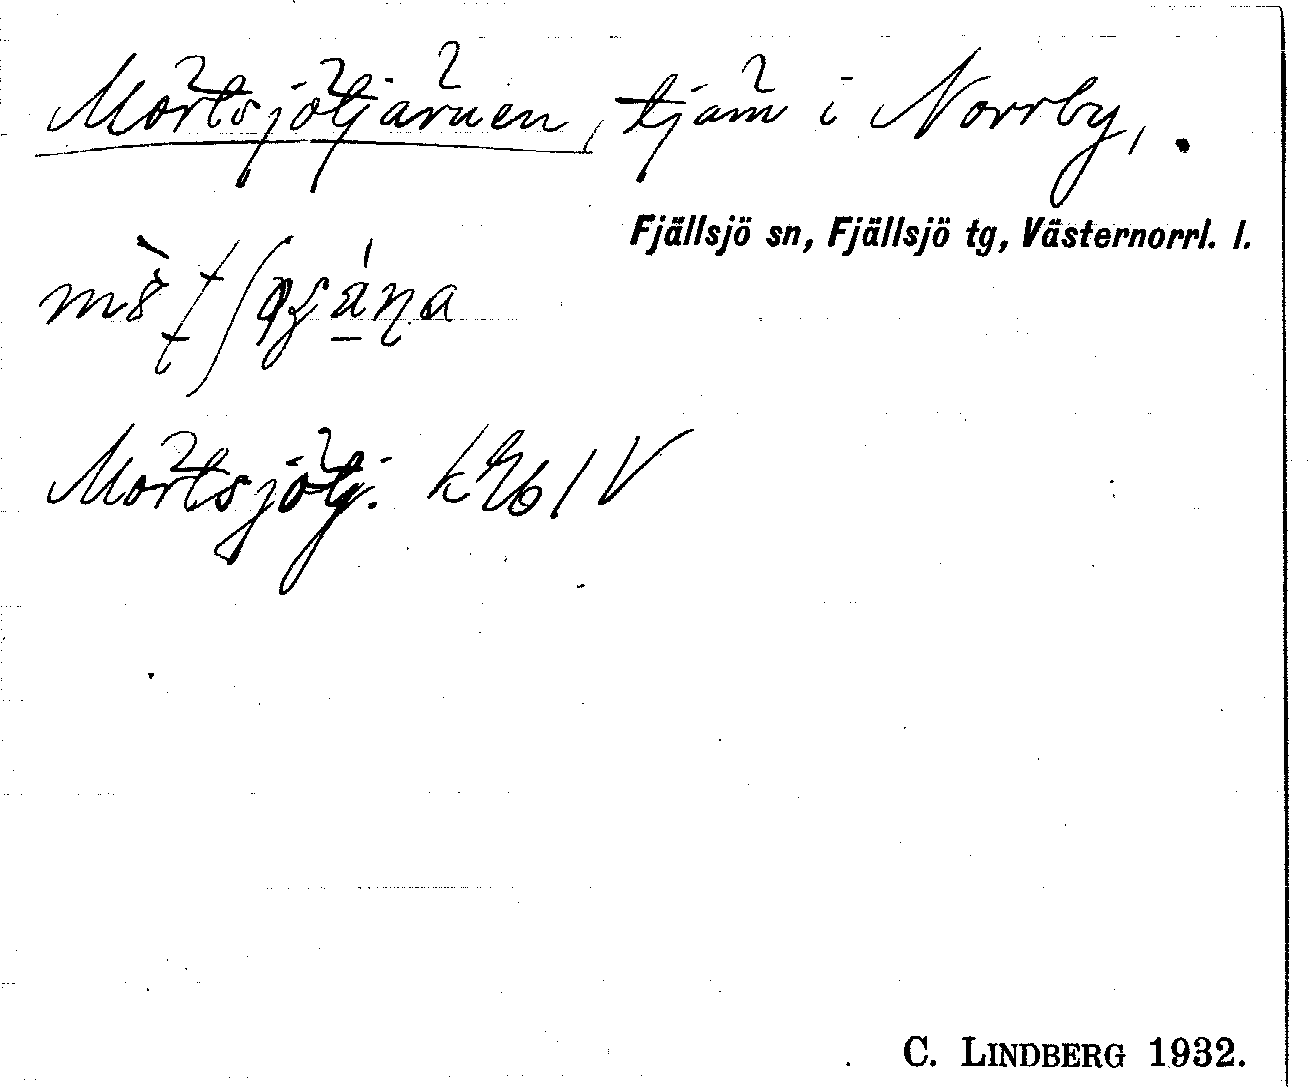 Mörtsjötjärnen, tjärn i Norrby, .
Fjällsjö sn, Fjällsjö tg, Västernorrl. l.
Mörtsjötj.
C. LINDBERG 1932.